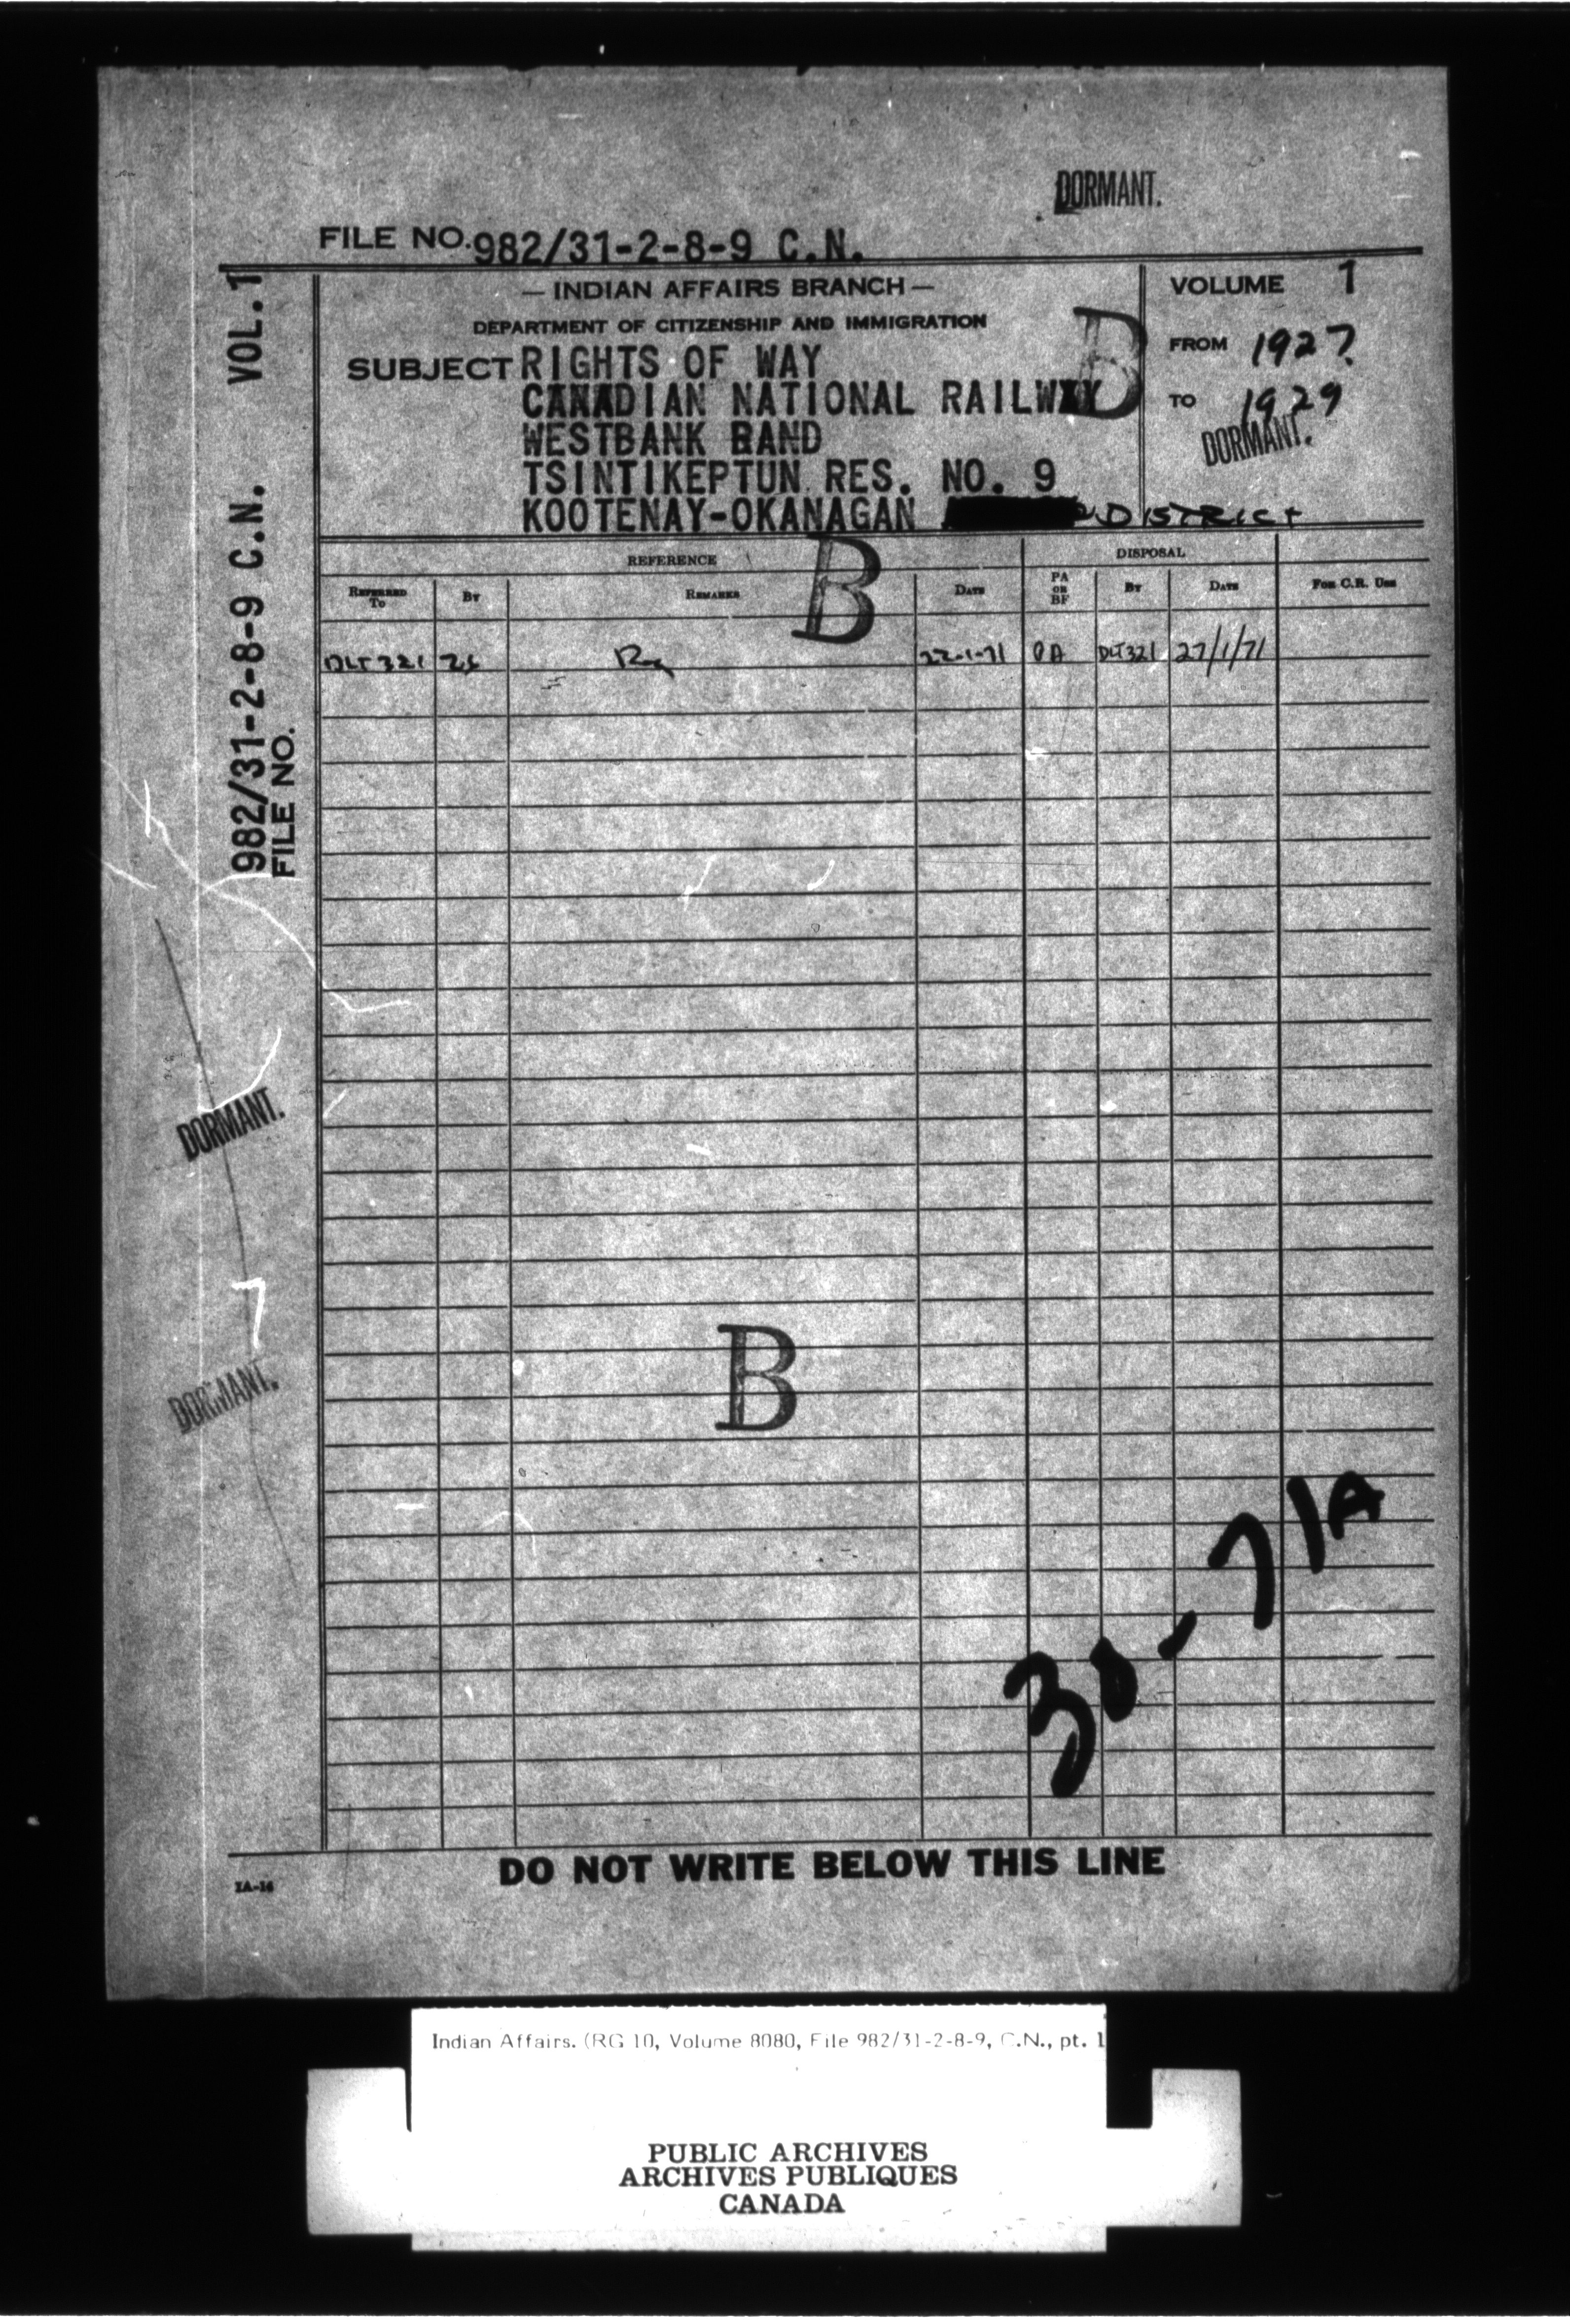 DORMANT.
FILE NO. 982/31-2-8-9 C.N.
VOL. 1
982/31-2-8-9 C.N.
FILE NO.
— INDIAN AFFAIRS BRANCH —
DEPARTMENT OF CITIZENSHIP AND IMMIGRATION
SUBJECT RIGHTS OF WAY
CANADIAN NATIONAL RAILWAY
WESTBANK BAND
TSINTIKEPTUN RES. NO. 9
KOOTENAY-OKANAGAN DISTRICT
B
VOLUME 1
FROM 1927
TO 1929
DORMANT.
REFERENCE DISPOSAL
REFERRED TO BY REMARKS DATE PA OR BF BY DATE FOR C.R. USE
B
DLT 321 22-1-71 PA DLT 321 27/1/71
DORMANT.
DORMANT.
B
30-71A
DO NOT WRITE BELOW THIS LINE
IA-16
Indian Affairs. (RG 10, Volume 8080, File 982/31-2-8-9, C.N., pt. 1
PUBLIC ARCHIVES
ARCHIVES PUBLIQUES
CANADA